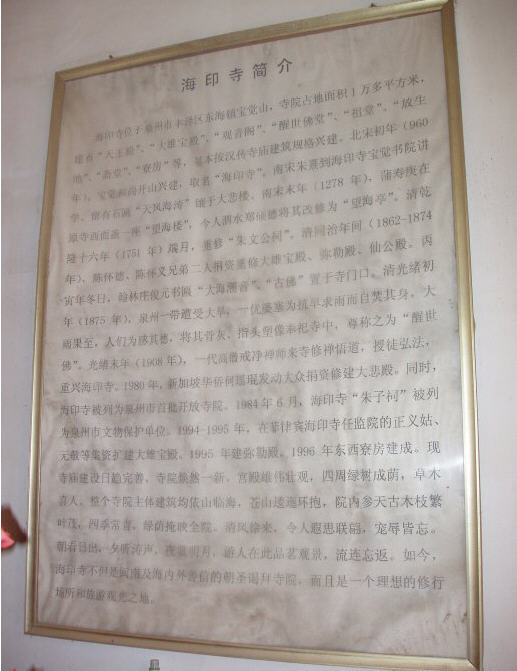 海印寺简介
海印寺位于泉州市丰泽区东海镇宝觉山，寺院占地面积1万多平方米，
建有“天王殿”、“大雄宝殿”、“观音阁”、“醒世佛堂”、“祖堂”、“放生
池”、“斋堂”、“寮房”等，基本按汉传寺庙建筑规格兴建。北宋初年（960
年），宝觉和尚开山兴建，取名“海印寺”。南宋朱熹到海印寺宝觉书院讲
学，留有石匾“天风海涛”镶于大悲楼。南宋末年（1278年），蒲寿庚在
原寺西面盖一座“望海楼”，今人泗水郑硕德将其改修为“望海亭”。清乾
隆十六年（1751年）端月，重修“朱文公祠”。清同治年间（1862-1874
年），陈怀德、陈怀义兄弟二人捐资重修大雄宝殿、弥勒殿、仙公殿。丙
寅年冬日，翰林庄俊元书匾“大海潮音”、“古佛”置于寺门口。清光绪初
年（1875年），泉州一带遭受大旱，一优婆塞为抗旱求雨而自焚其身。大
雨果至，人们为感其德，将其骨灰、指头塑像奉祀寺中，尊称之为“醒世
佛”。光绪末年（1908年），一代高僧戒净禅师来寺修禅悟道，授徒弘法，
重兴海印寺。1980年，新加坡华侨何瑶琨发动大众捐资修建大悲殿。同时，
海印寺被列为泉州市首批开放寺院。1984年6月，海印寺“朱子祠”被列
为泉州市文物保护单位。1994-1995年，在菲律宾海印寺任监院的正义姑、
元毅等集资扩建大雄宝殿。1995年建弥勒殿。1996年东西寮房建成。现
寺庙建设日趋完善，寺院焕然一新。宫殿雄伟壮观，四周绿树成荫，草木
喜人。整个寺院主体建筑均依山临海，苍山逶迤环抱，院内参天古木枝繁
叶茂，四季常青，绿荫掩映全院。清风徐来，令人遐思联翩，宠辱皆忘。
朝看日出，夕听涛声，夜赏明月，游人在此品茗观景，流连忘返。如今，
海印寺不但是闽南及海内外善信的朝圣谒拜寺院，而且是一个理想的修行
场所和旅游观光之地。